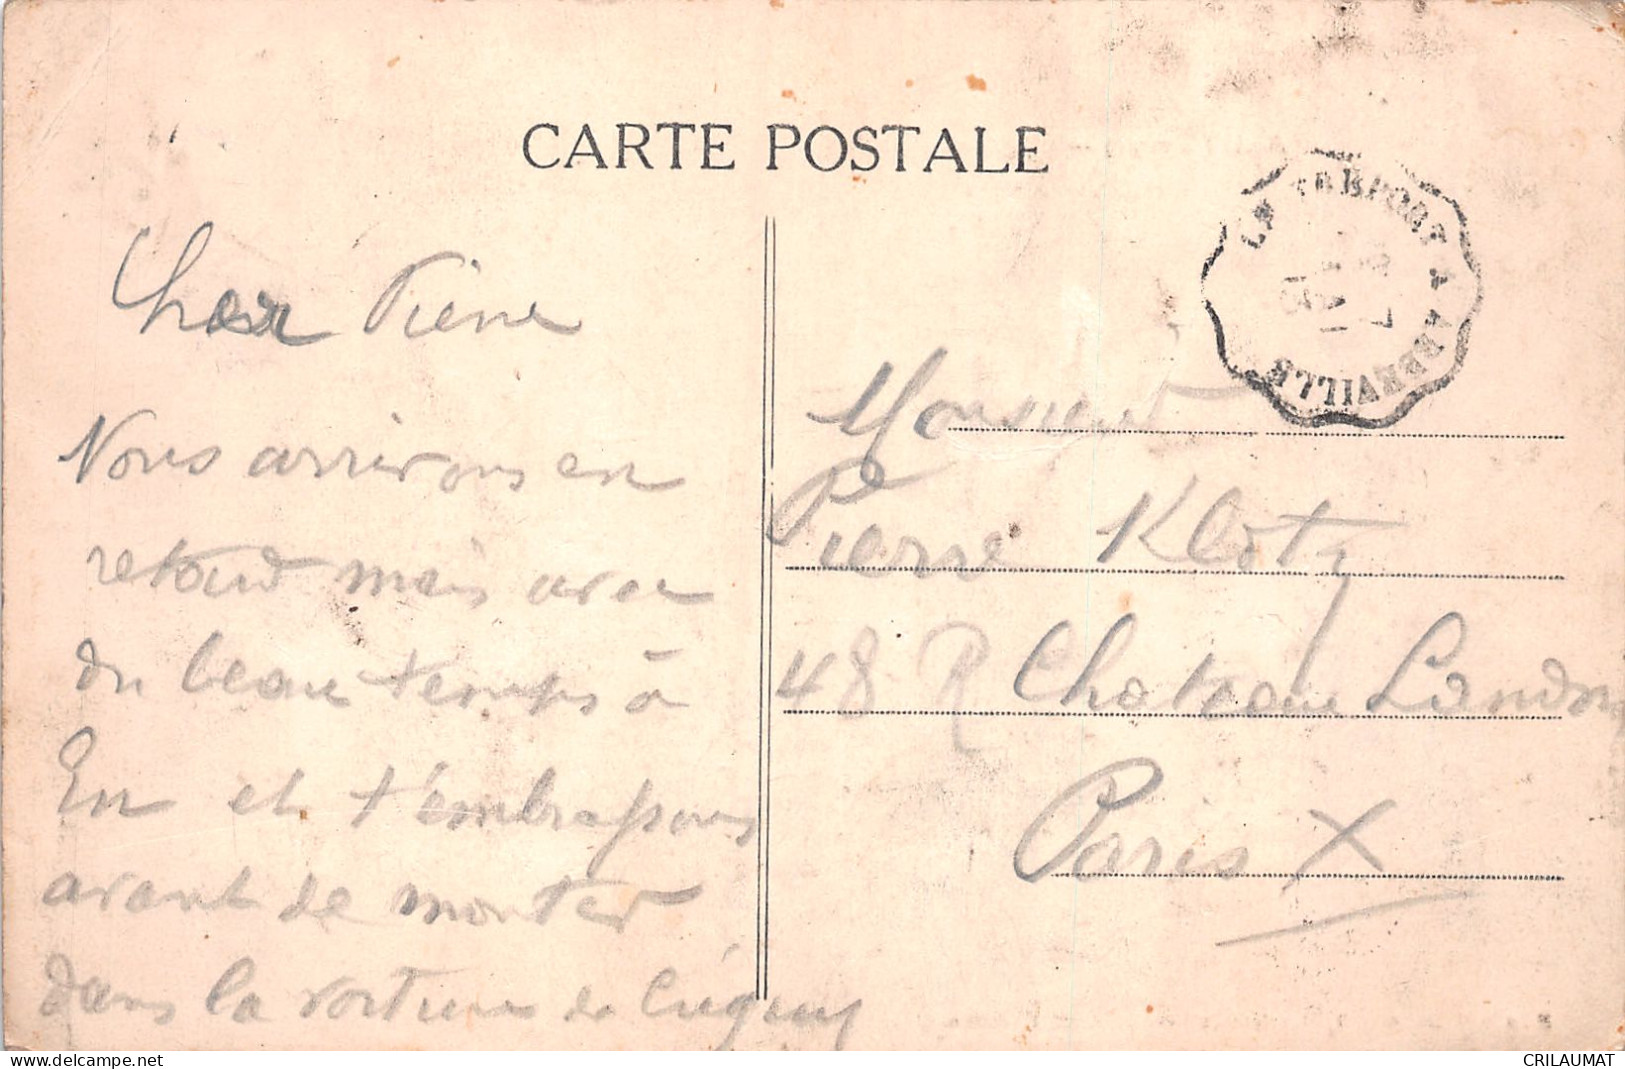 CARTE POSTALE
LE TREPORT A ABBEVILLE
Cher Pierre
Nous arrivons en
retard mais avec
du beau temps à
Eu et t'embrassons
avant de monter
dans la voiture de
Monsieur
Pierre Klotz
48 R Chateau Landon
Paris X
www.delcampe.net
CRILAUMAT